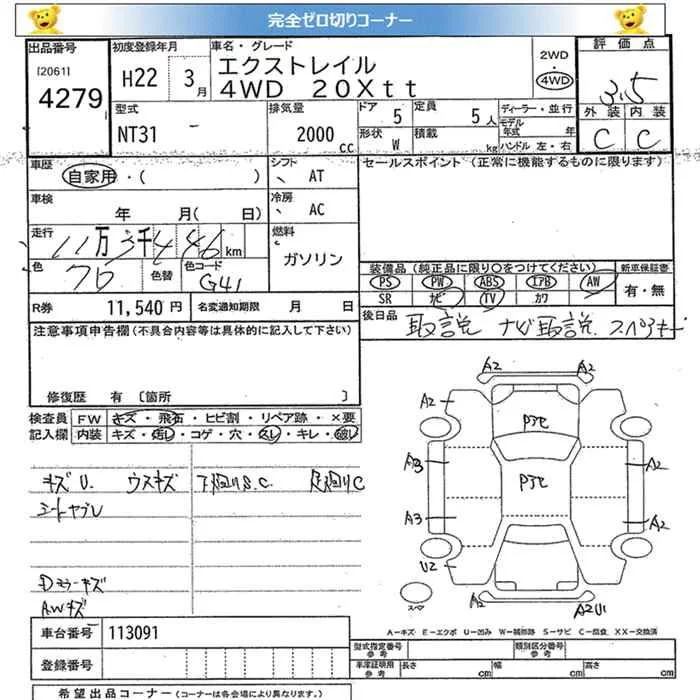 完全ゼロ切りコーナー
出品番号 [2061] 4279
初度登録年月 H22 3月
車名・グレード エクストレイル
4WD 20Xtt
2WD・4WD
評価点 3.5
外装 C 内装 C
型式 NT31 -
排気量 2000 cc
ドア 5
定員 5人
形状 W
積載 kg
ディーラー・並行
モデル年式 年
ハンドル 左・右
車歴 自家用・( )
シフト AT
車検 年 月( 日)
冷房 AC
走行 11万3千446km
燃料 ガソリン
色 クロ 色替 色コード G41
R券 11,540円 名変通知期限 月 日
セールスポイント(正常に機能するものに限ります)
装備品(純正品に限り○をつけてください) 新車保証書
PS PW ABS エアB AW 有・無
SR ナビ TV カワ
後日品 取説 ナビ取説 スペアキー
注意事項申告欄(不具合内容等は具体的に記入して下さい)
修復歴 有 [箇所 ]
検査員 FW キズ・飛石・ヒビ割・リペア跡・×要
記入欄 内装 キズ・汚レ・コゲ・穴・スレ・キレ・破レ
キズU. ウスキズ 下廻りS.C 足廻りC
シートヤブレ
Dミラーキズ
AWキズ
A2 A2
A2
Pアセ
A3 A2
Pアセ
A3 A2
U2
スペア A2 A2U1
A-キズ E-エクボ U-凹み W-補修跡 S-サビ C-腐食 XX-交換済
車台番号 113091
型式指定番号 参考 類別区分番号 参考
登録番号
車庫証明用 参考 長さ cm 幅 cm 高さ cm
希望出品コーナー(コーナーは各会場により異なります。)